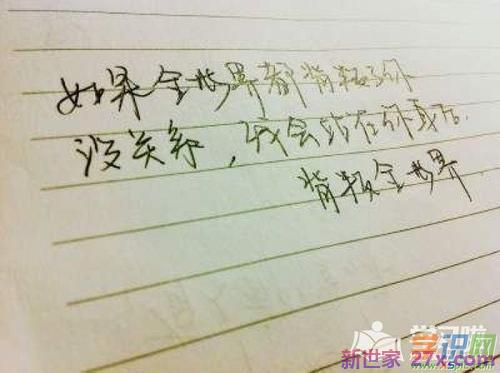 如果全世界都背叛了你
没关系，我会站在你身后，
背叛全世界
学习啦
学识网
新世家 27x.com